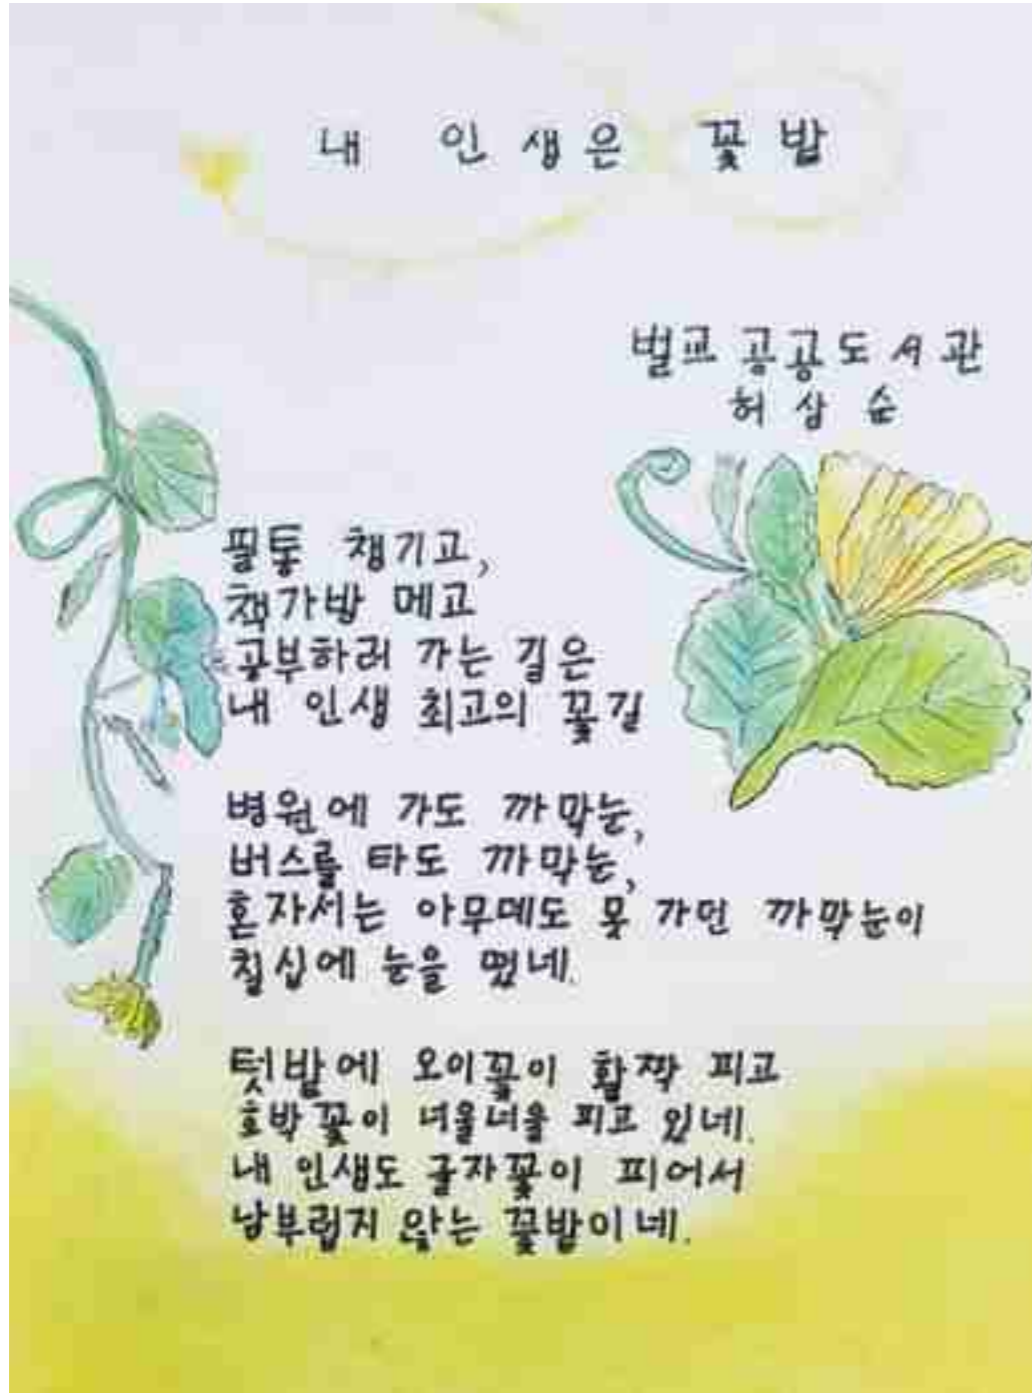 내 인생은 꽃밭
벌교 공공도서관
허상순
필통 챙기고,
책가방 메고
공부하러 가는 길은
내 인생 최고의 꽃길
병원에 가도 까막눈,
버스를 타도 까막눈,
혼자서는 아무데도 못 가던 까막눈이
칠십에 눈을 떴네.
텃밭에 오이꽃이 활짝 피고
호박꽃이 너울너울 피고 있네.
내 인생도 글자꽃이 피어서
남부럽지 않는 꽃밭이네.